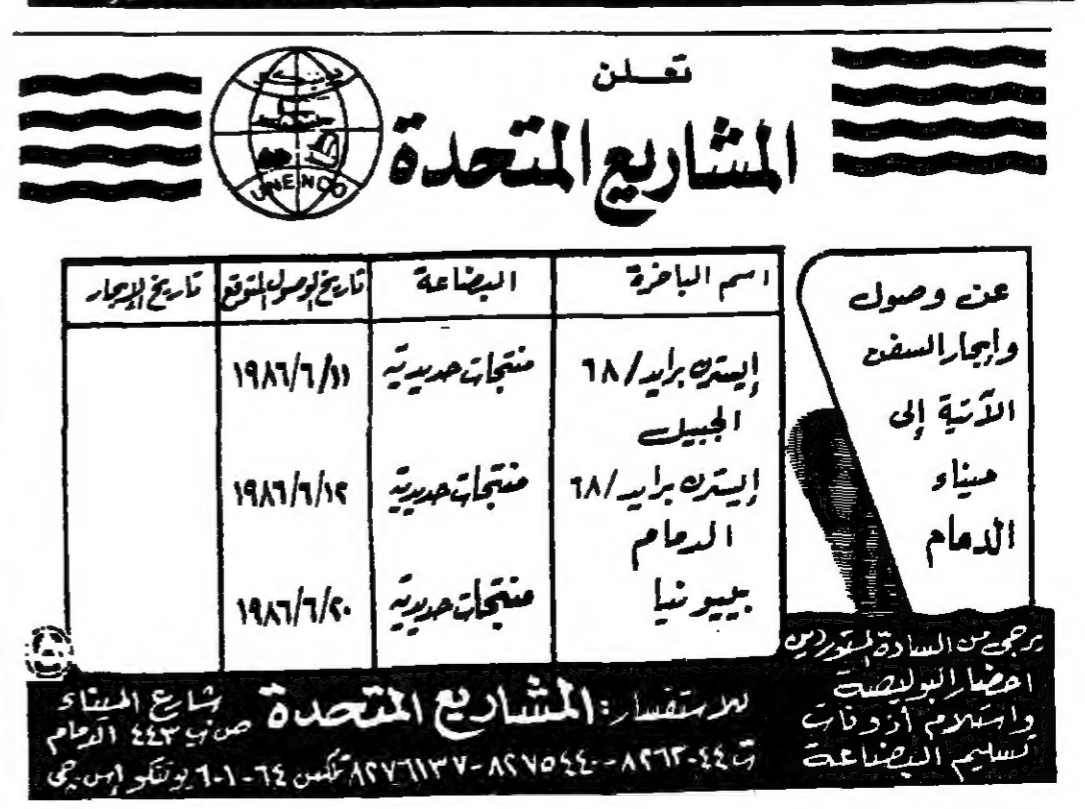 تعلن
المشاريع المتحدة
UNENCO
عن وصول
وإبحار السفن
الآتية إلى
ميناء
الدمام
اسم الباخرة البضاعة تاريخ الوصول المتوقع تاريخ الإبحار
إيسترن برايد/٦٨ منتجات حديدية ١٩٨٦/٦/١١
الجبيل
إيسترن برايد/٦٨ منتجات حديدية ١٩٨٦/٦/١٢
الدمام
بييونيا منتجات حديدية ١٩٨٦/٦/٢٠
يرجى من السادة المستوردين
احضار البوليصة
واستلام أذونات
تسليم البضاعة
للاستفسار: المشاريع المتحدة شارع الميناء
ص ب ٤٤٣ الدمام
ت ٨٢٦٢٠٤٤-٨٢٧٥٤٤٠-٨٢٧٦١٣٧ تلكس ٦٠١٠٦٤ يوننكو إس جي